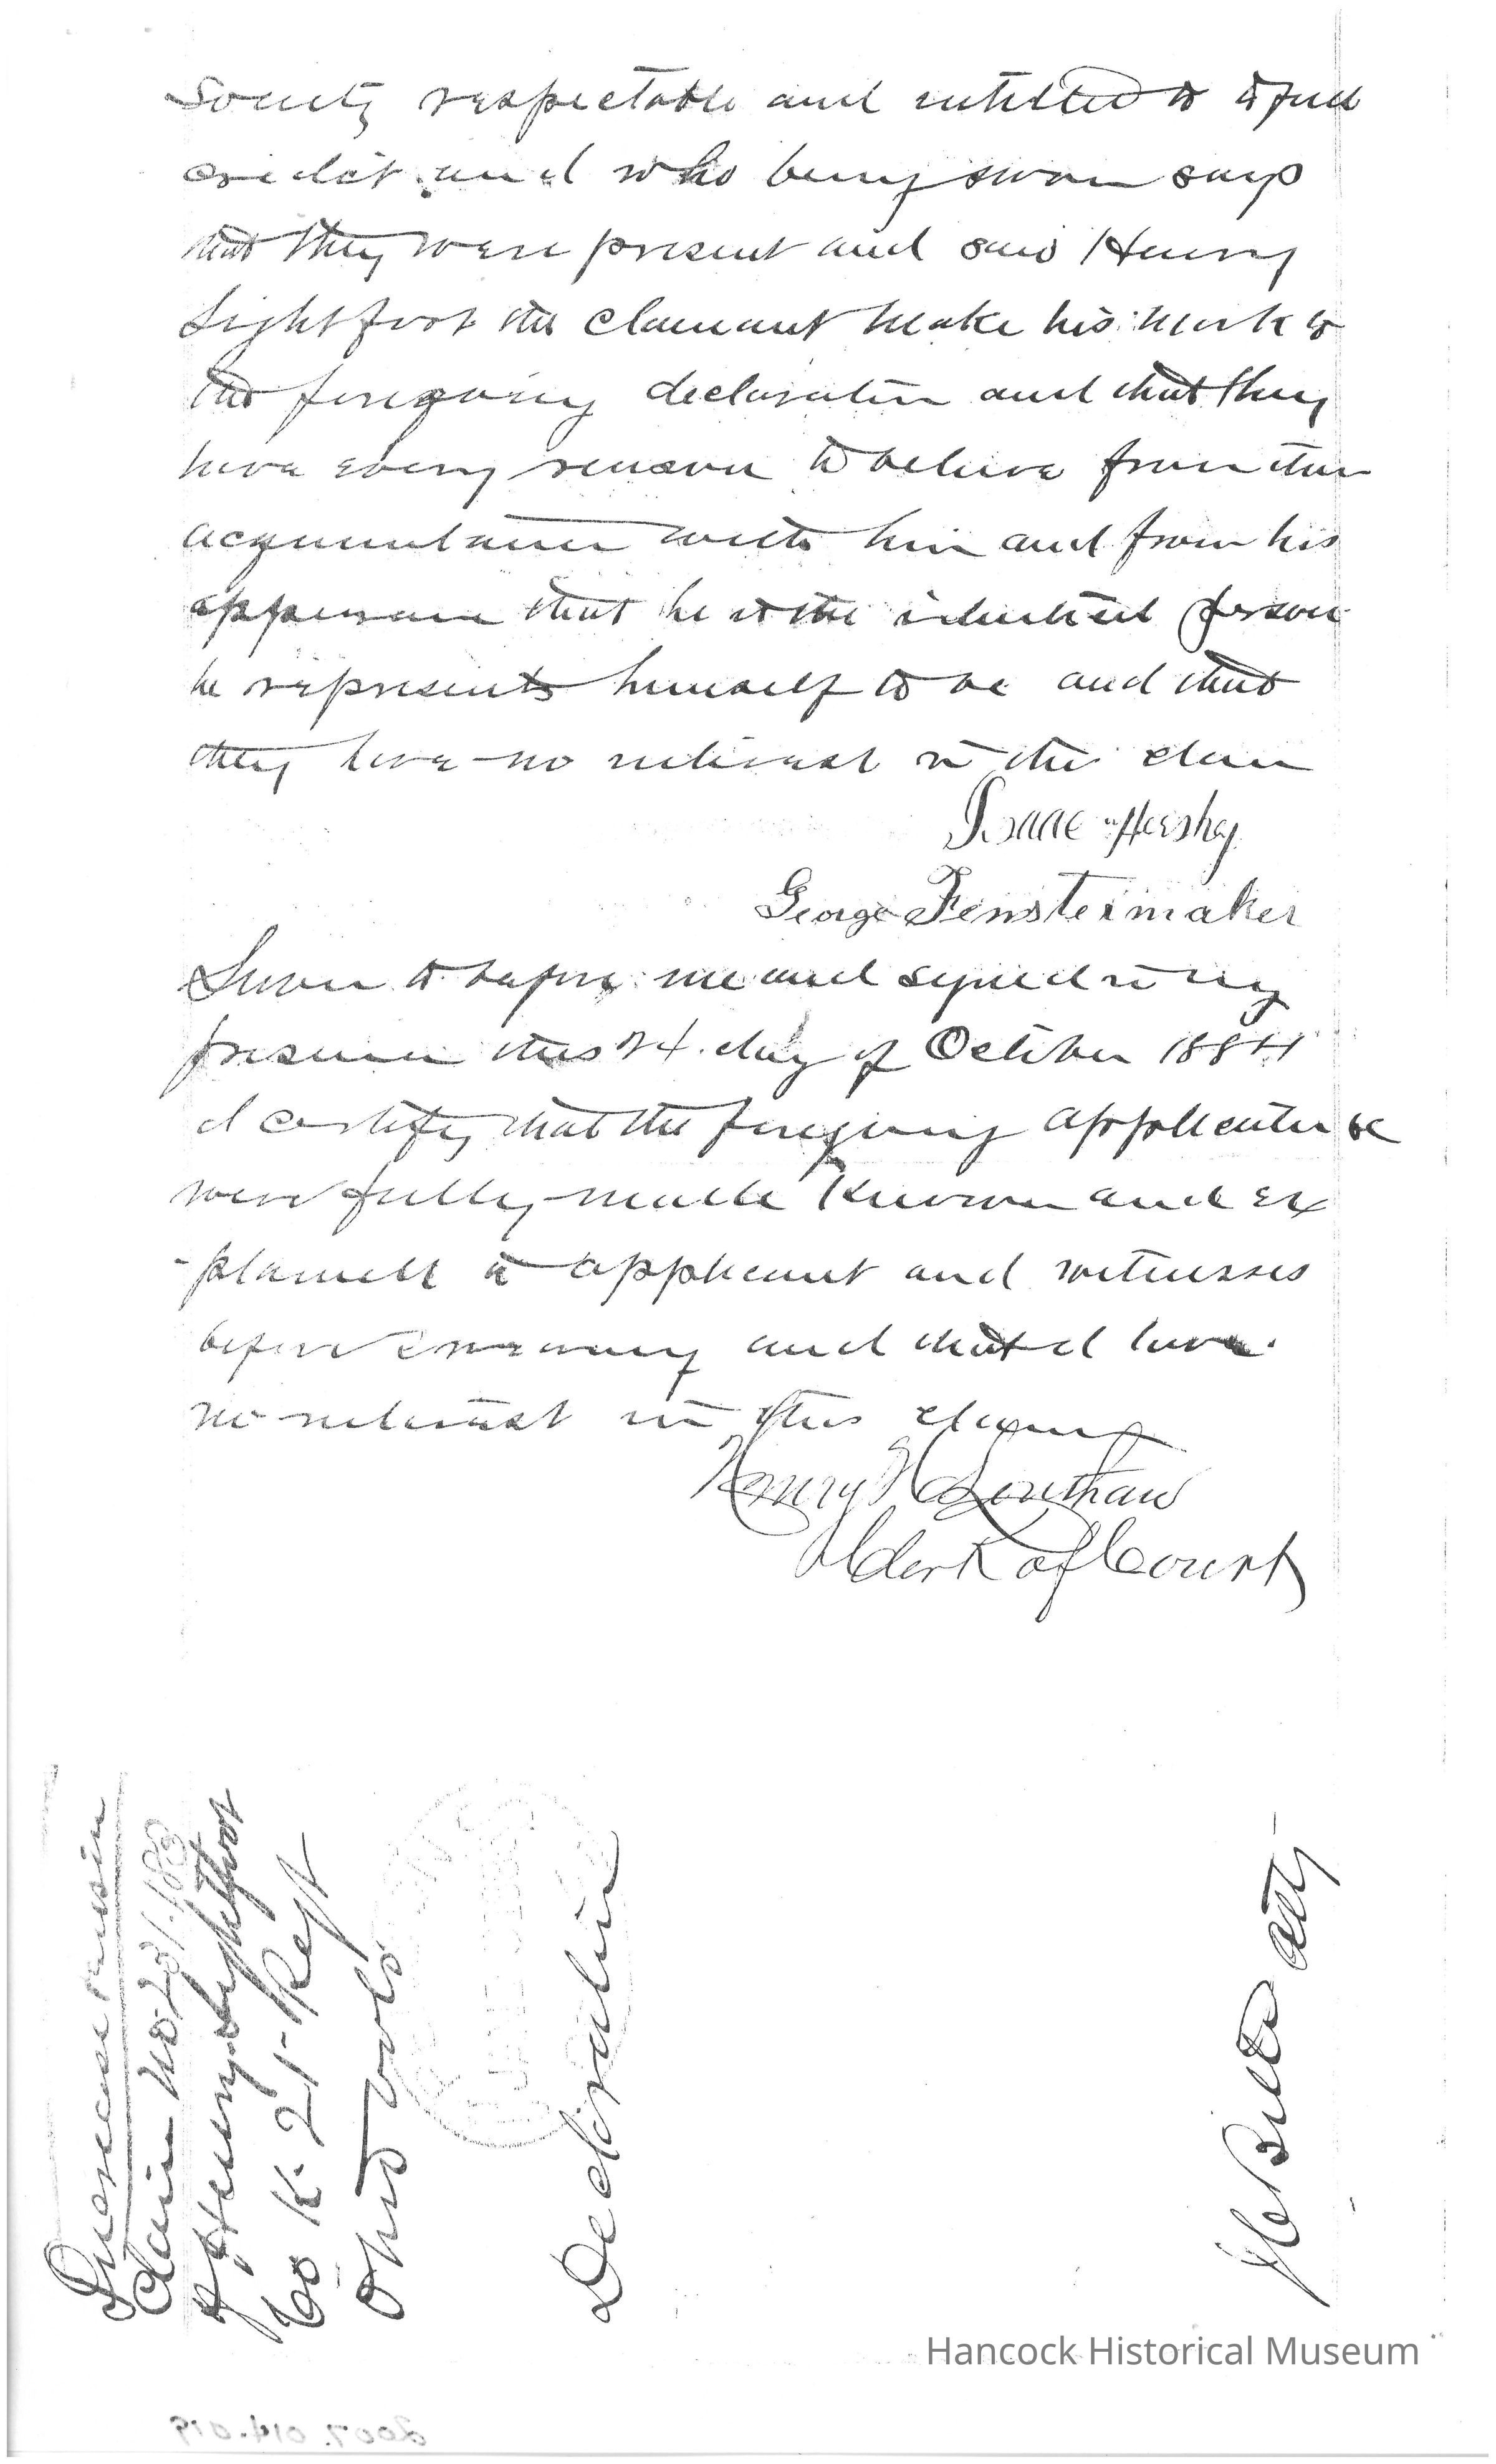 Society respectable and entitled to to full
credit and who being sworn says
that they were present and saw Henry
Lightfoot the claimant make his mark to
the foregoing declaration and that they
have every reason to believe from their
acquaintance with him and from his
appearance that he is the identical person
he represents himself to be and that
they have no interest in the claim
Isaac Hershey
George Fenstermaker
Sworn to before me and signed in my
presence this 24 day of October 1884
I certify that the foregoing application &c
were fully made known and ex
-plained to applicant and witnesses
before swearing and that I have
no interest in this claim
Henry H Louthan
Clerk of Court
Increase Pension
Claim No 231.183
of Henry Lightfoot
Co K. 21 Regt
Ohio Vols
Declaration
Atty
Hancock Historical Museum
2007.014.019